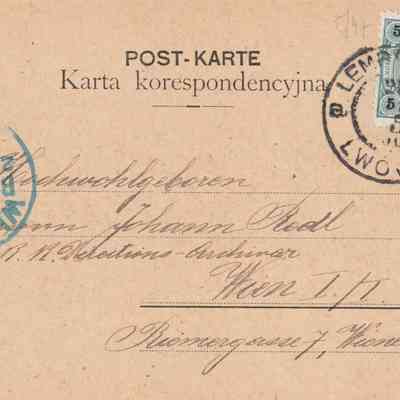 5/47
POST-KARTE
Karta korespondencyjna
LEMBERG
LWÓW
5
5
Hochwohlgeboren
Herrn Johann Redl
K. K. Directions-Archivar
Wien I./1.
Riemergasse 7, Wiene
WIEN